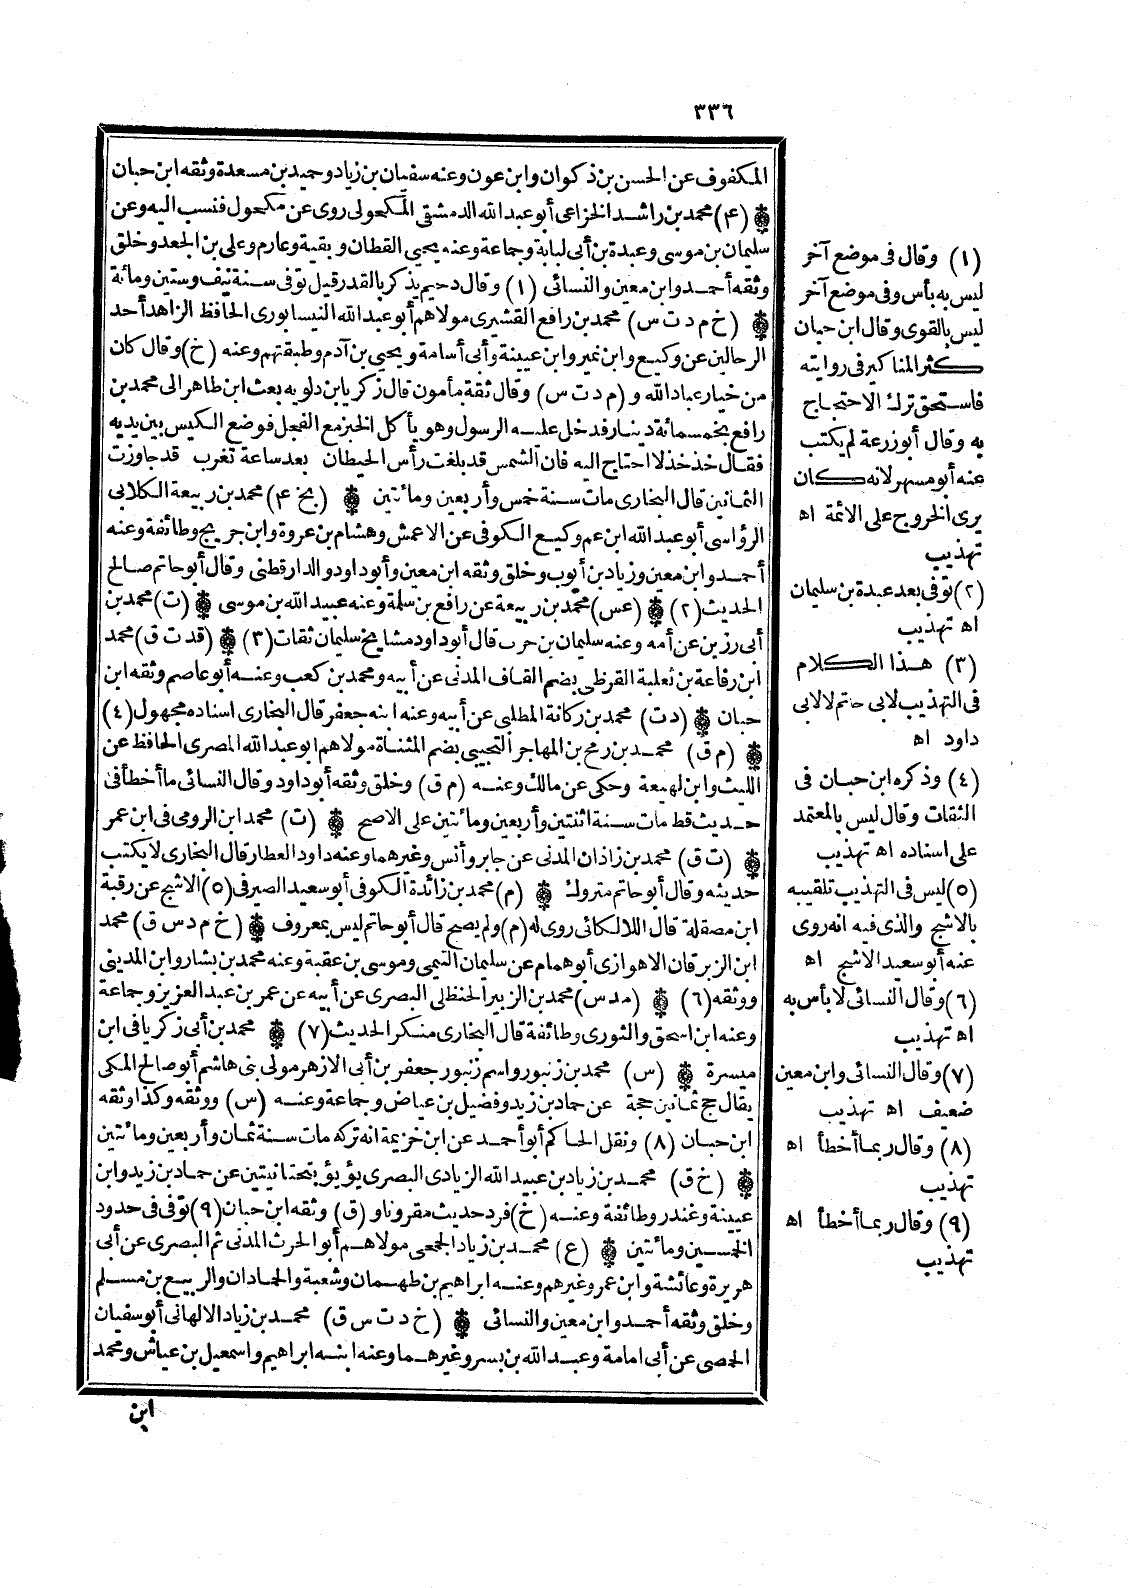 ٣٣٦
المكفوف عن الحسن بن ذكوان وابن عون وعنه سفيان بن زياد وحميد بن مسعدة وثقه ابن حبان
(٤) محمد بن راشد الخزاعى أبو عبد الله الدمشقى المكحولى روى عن مكحول فنسب اليه وعن
سليمان بن موسى وعبدة بن أبى لبابة وجماعة وعنه يحيى القطان وبقية وعارم وعلى بن الجعد وخلق
وثقه أحمد وابن معين والنسائى (١) وقال دحيم يذكر بالقدر قيل توفى سنة نيف وستين ومائة
(خ م د ت س) محمد بن رافع القشيرى مولاهم أبو عبد الله النيسابورى الحافظ الزاهد أحد
الرحالين عن وكيع وابن نمير وابن عيينة وأبى أسامة ويحيى بن آدم وطبقتهم وعنه (خ) وقال كان
من خيار عباد الله و (م د ت س) وقال ثقة مأمون قال زكريا بن دلويه بعث ابن طاهر الى محمد بن
رافع بخمسمائة دينار فدخل عليه الرسول وهو يأكل الخبز مع الفجل فوضع الكيس بين يديه
فقال خذ خذ لا احتاج اليه فان الشمس قد بلغت رأس الحيطان بعد ساعة تغرب قد جاوزت
الثمانين قال البخارى مات سنة خمس وأربعين ومائتين (بخ ٤) محمد بن ربيعة الكلابى
الرؤاسى أبو عبد الله ابن عم وكيع الكوفى عن الاعمش وهشام بن عروة وابن جريج وطائفة وعنه
أحمد وابن معين وزياد بن أيوب وخلق وثقه ابن معين وأبو داود والدارقطنى وقال أبو حاتم صالح
الحديث (٢) (عس) محمد بن ربيعة عن رافع بن سلمة وعنه عبيد الله بن موسى (ت) محمد بن
أبى رزين عن أمه وعنه سليمان بن حرب قال أبو داود مشايخ سليمان ثقات (٣) (قد ت ق) محمد
ابن رفاعة بن ثعلبة القرظى بضم القاف المدنى عن أبيه ومحمد بن كعب وعنه أبو عاصم وثقه ابن
حبان (د ت) محمد بن ركانة المطلبى عن أبيه وعنه ابنه جعفر قال البخارى اسناده مجهول (٤)
(م ق) محمد بن رمح بن المهاجر التجيبى بضم المثناة مولاهم ابو عبد الله المصرى الحافظ عن
الليث وابن لهيعة وحكى عن مالك وعنه (م ق) وخلق وثقه أبو داود وقال النسائى ما أخطأ فى
حديث قط مات سنة اثنتين وأربعين ومائتين على الاصح (ت) محمد ابن الرومى فى ابن عمر
(ت ق) محمد بن زاذان المدنى عن جابر وأنس وغيرهما وعنه داود العطار قال البخارى لا يكتب
حديثه وقال أبو حاتم متروك (م) محمد بن زائدة الكوفى أبو سعيد الصيرفى (٥) الاشج عن رقبة
ابن مصقلة قال اللالكائى روى له (م) ولم يصح قال أبو حاتم ليس بمعروف (خ م د س ق) محمد
ابن الزبرقان الاهوازى أبو همام عن سليمان التيمى وموسى بن عقبة وعنه محمد بن بشار وابن المدينى
ووثقه (٦) (مد س) محمد بن الزبير الحنظلى البصرى عن أبيه عن عمر بن عبد العزيز وجماعة
وعنه ابن اسحق والثورى وطائفة قال البخارى منكر الحديث (٧) محمد بن أبى زكريا فى ابن
ميسرة (س) محمد بن زنبور واسم زنبور جعفر بن أبى الازهر مولى بنى هاشم أبو صالح المكى
يقال حج ثمانين حجة عن حماد بن زيد وفضيل بن عياض وجماعة وعنه (س) ووثقه وكذا وثقه
ابن حبان (٨) ونقل الحاكم أبو أحمد عن ابن خزيمة انه تركه مات سنة ثمان وأربعين ومائتين
(خ ق) محمد بن زياد بن عبيد الله الزيادى البصرى يؤيؤ بتحتانيتين عن حماد بن زيد وابن
عيينة وغندر وطائفة وعنه (خ) فرد حديث مقرونا و (ق) وثقه ابن حبان (٩) توفى فى حدود
الخمسين ومائتين (ع) محمد بن زياد الجمحى مولاهم أبو الحرث المدنى ثم البصرى عن أبى
هريرة وعائشة وابن عمر وغيرهم وعنه ابراهيم بن طهمان وشعبة والحمادان والربيع بن مسلم
وخلق وثقه أحمد وابن معين والنسائى (خ د ت س ق) محمد بن زياد الالهانى أبو سفيان
الحمصى عن أبى امامة وعبد الله بن بسر وغيرهما وعنه ابنه ابراهيم واسمعيل بن عياش ومحمد
ابن
(١) وقال فى موضع آخر
ليس به بأس وفى موضع آخر
ليس بالقوى وقال ابن حبان
كثر المناكير فى روايته
فاستحق ترك الاحتجاج
به وقال أبو زرعة لم يكتب
عنه أبو مسهر لانه كان
يرى الخروج على الائمة اه
تهذيب
(٢) توفى بعد عبدة بن سليمان
اه تهذيب
(٣) هذا الكلام
فى التهذيب لابى حاتم لا لابى
داود اه
(٤) وذكره ابن حبان فى
الثقات وقال ليس بالمعتمد
على اسناده اه تهذيب
(٥) ليس فى التهذيب تلقيبه
بالاشج والذى فيه انه روى
عنه أبو سعيد الاشج اه
(٦) وقال النسائى لا بأس به
اه تهذيب
(٧) وقال النسائى وابن معين
ضعيف اه تهذيب
(٨) وقال ربما أخطأ اه
تهذيب
(٩) وقال ربما أخطأ اه
تهذيب